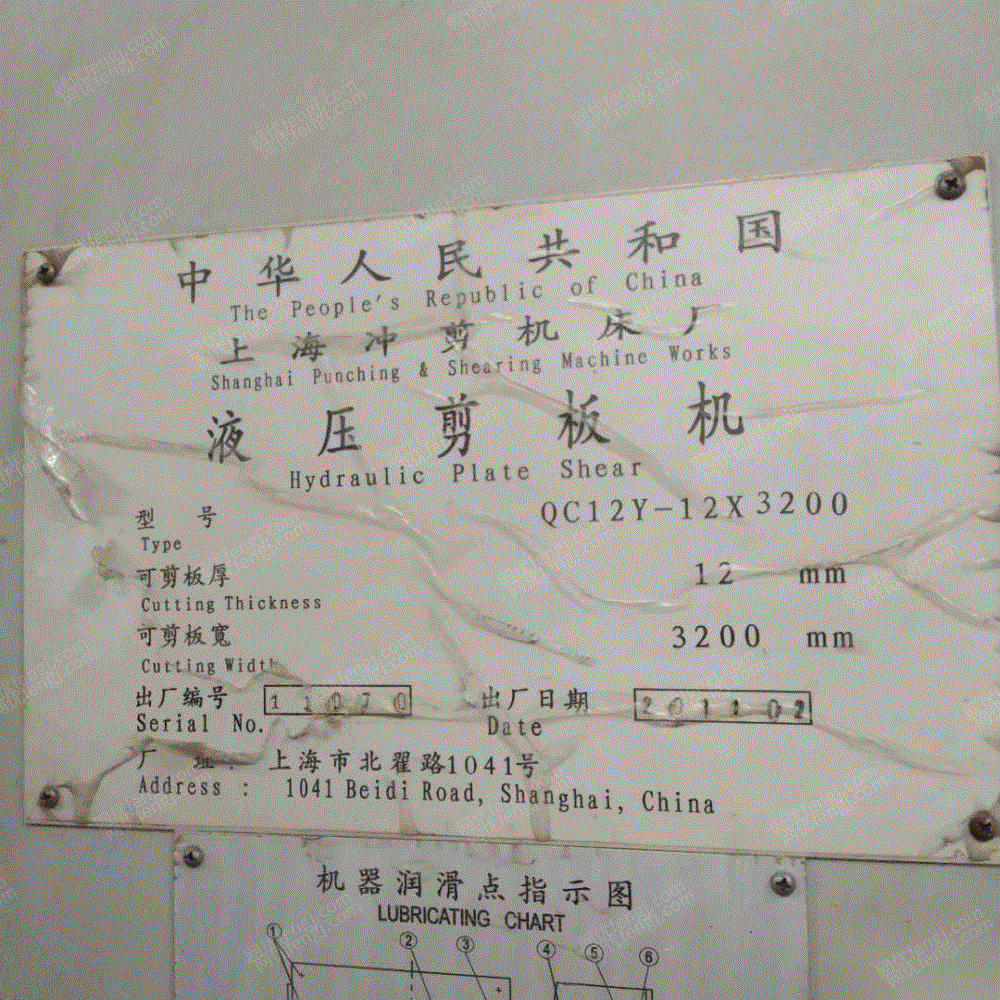 中华人民共和国
The People's Republic of China
上海冲剪机床厂
Shanghai Punching & Shearing Machine Works
液压剪板机
Hydraulic Plate Shear
型号 QC12Y-12X3200
Type
可剪板厚 12 mm
Cutting Thickness
可剪板宽 3200 mm
Cutting Width
出厂编号 11070 出厂日期 201102
Serial No. Date
厂址: 上海市北翟路1041号
Address: 1041 Beidi Road, Shanghai, China
机器润滑点指示图
LUBRICATING CHART
① ② ③ ④ ⑤ ⑥